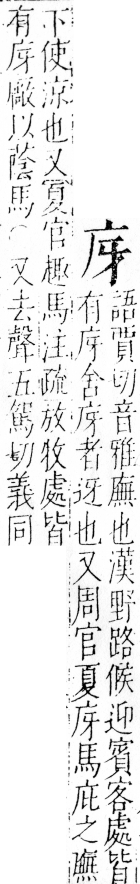 庌
語賈切音雅廡也漢野路候迎賓客處皆
有庌舍庌者迓也又周官夏庌馬庇之廡
下使涼也又夏官趣馬注疏放牧處皆
有庌廠以蔭馬○又去聲五駕切義同